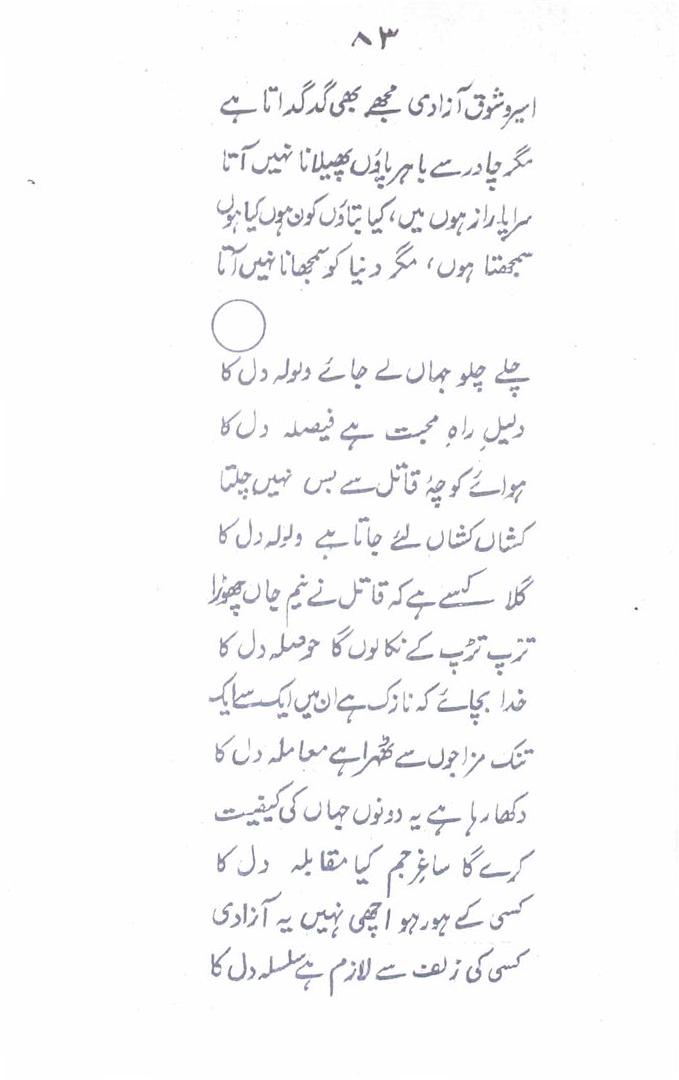 ۸۳
اسیر و شوق آزادی مجھے بھی گدگداتا ہے
مگر چادر سے باہر پاؤں پھیلانا نہیں آتا
سراپا راز ہوں میں، کیا بتاؤں کون ہوں کیا ہوں
سمجھتا ہوں، مگر دنیا کو سمجھانا نہیں آتا
چلے چلو جہاں لے جائے ولولہ دل کا
دلیلِ راہِ محبت ہے فیصلہ دل کا
ہوائے کوچۂ قاتل سے بس نہیں چلتا
کشاں کشاں لئے جاتا ہے ولولہ دل کا
گلا کسے ہے کہ قاتل نے نیم جاں چھوڑا
تڑپ تڑپ کے نکالوں گا حوصلہ دل کا
خدا بچائے کہ نازک ہے ان میں ایک سے ایک
تنک مزاجوں سے ٹھہرا ہے معاملہ دل کا
دکھا رہا ہے یہ دونوں جہاں کی کیفیت
کرے گا ساغرِ جم کیا مقابلہ دل کا
کسی کے ہو رہو اچھی نہیں یہ آزادی
کسی کی زلف سے لازم ہے سلسلہ دل کا